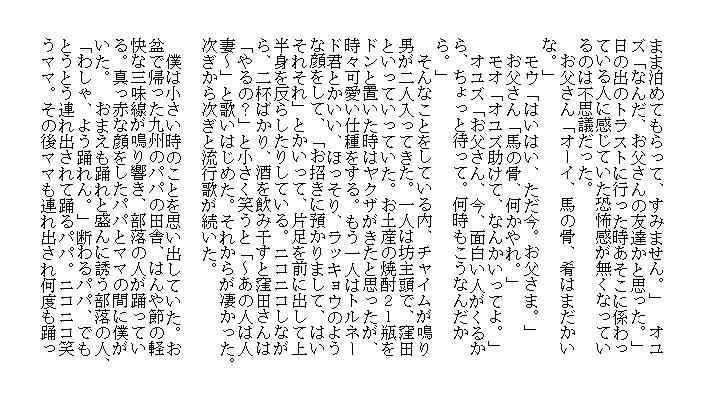 まま泊めてもらって、すみません。」　オユ
ズ「なんだ、お父さんの友達かと思った。」
日の出のトラストに行った時あそこに係わっ
ている人に感じていた恐怖感が無くなってい
るのは不思議だった。
　お父さん「オーイ、馬の骨、肴はまだかい
な。」
　モウ「はいはい、ただ今。お父さま。」
　お父さん「馬の骨、何かやれ。」
　モオ「オユズ助けて、なんかいってよ。」
　オユズ「お父さん、今、面白い人がくるか
ら、ちょっと待って。何時もこうなんだか
ら。」
　そんなことをしている内、チャイムが鳴り
男が二人入ってきた。一人は坊主頭で、窪田
といっていっていた。お土産の焼酎２１瓶を
ドンと置いた時はヤクザがきたと思ったが、
時々可愛い仕種をする。もう一人はトルネー
ド君とかいい、ほっそり、ラッキョウのよう
な顔をして、「お招きに預かりまして、はい
それそれ」とかいって、片足を前に出して上
半身を反らしたりしている。ニコニコしなが
ら、二杯ばかり、酒を飲み干すと窪田さんは
「やるの？」と小さく笑うと「～あの人は人
妻～」と歌いはじめた。それからが凄かった。
次ぎから次ぎと流行歌が続いた。
　僕は小さい時のことを思い出していた。お
盆で帰った九州のパパの田舎、はんや節の軽
快な三味線が鳴り響き、部落の人が踊ってい
る。真っ赤な顔をしたパパとママの間に僕が
いた。　おまえも踊れと盛んに誘う部落の人、
「わしゃ、よう踊れん。」断わるパパ、でも
とうとう連れ出されて踊るパパ。ニコニコ笑
うママ。その後ママも連れ出され何度も踊っ